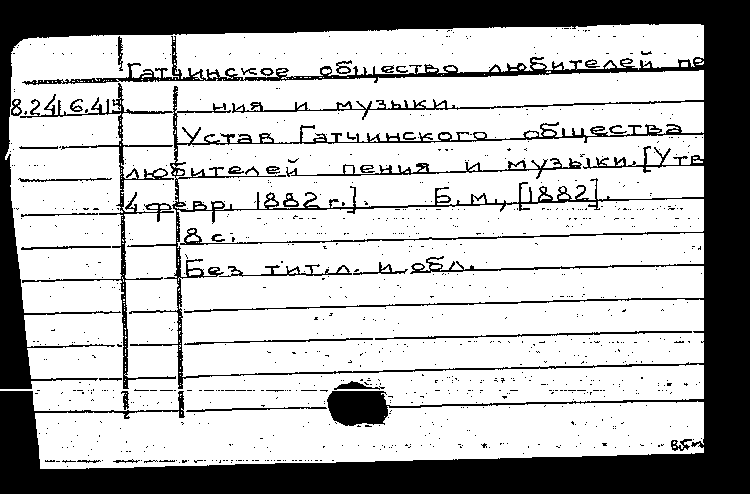 Гатчинское общество любителей пе
8.241.6.415. ния и музыки.
Устав Гатчинского общества
любителей пения и музыки. [Утв
4 февр. 1882 г.]. Б. м., [1882].
8 с.
Без тит. л. и обл.